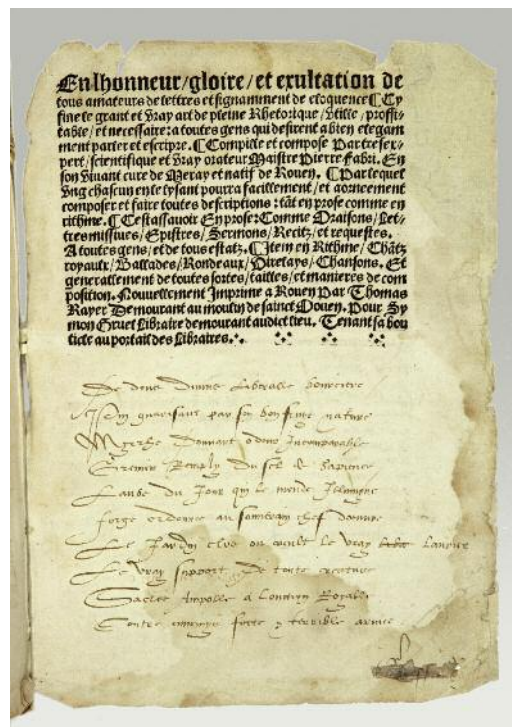 En lhonneur/gloire/et exultation de
tous amateurs de lettres et signamment de eloquence ⸿ Cy
fine le grant et vray art de pleine Rhetorique/vtille/proffi-
table/et necessaire: a toutes gens qui desirent a bien elegam
ment parler et escripre. ⸿ Compille et compose Par tresex-
pert/scientifique et vray orateur Maistre Pierre Fabri. En
son viuant cure de Meray et natif de Rouen. ⸿ Par lequel
vng chascun en le lysant pourra facillement/et aorneement
composer et faire toutes descriptions: tāt en prose comme en
rithme. ⸿ Cestassauoir En prose: Comme Oraisons/Let-
tres missiues/Epistres/Sermons/Recitz/et requestes.
A toutes gens/et de tous estatz. ⸿ Item en Rithme/Chātz
royaulx/Ballades/Rondeaux/Virelays/Chansons. Et
generallement de toutes sortes/tailles/et manieres de com
position. Nouuellement Imprime a Rouen Par Thomas
Rayer Demourant au moulin de sainct Ouen. Pour Sy
mon Gruel Libraire demourant audict lieu. Tenant sa bou
ticle au portail des Libraires.
De dens Diuine Liberalle
guarisant par son nature
donnant odeur Incomparable
Remply du sel & Sapience
Laube du Jour qui le monde Illumyne
forge ordonne au souuerain chef
Le Jardin clos ou le vray Laurier
Le vray support de toute creature
Sacree Ampolle a Royalle
Contre forte & terrible armee